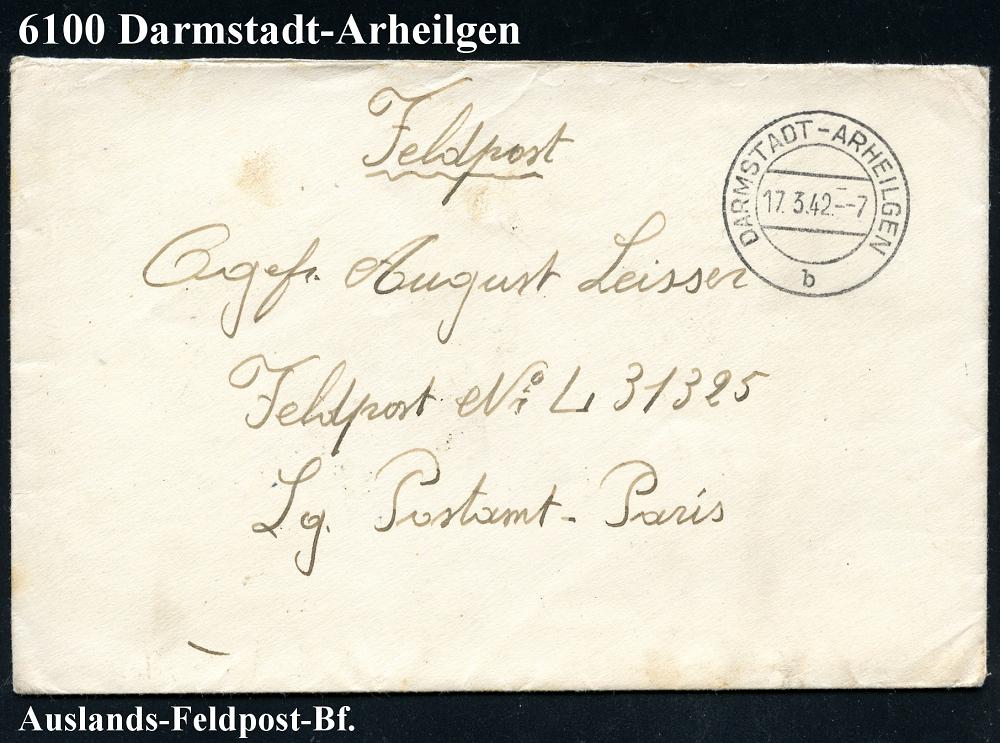 6100 Darmstadt-Arheilgen
Feldpost
DARMSTADT-ARHEILGEN
17.3.42.--7
b
Ogefr. August Leisser
Feldpost No L 31325
Lg. Postamt - Paris
Auslands-Feldpost-Bf.